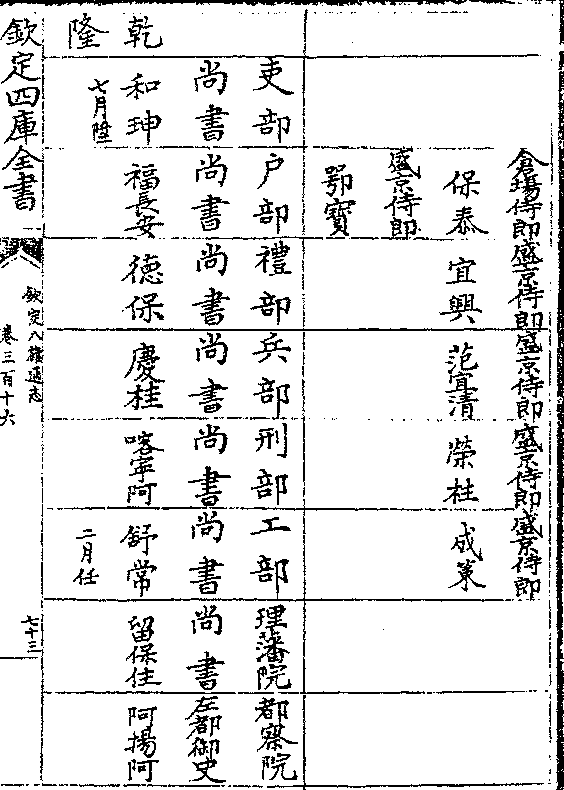 倉場侍郎 盛京侍郎 盛京侍郎 盛京侍郎 盛京侍郎
保泰 宜興 范宜清 榮柱 成策
盛京侍郎
鄂寶
吏部 户部 禮部 兵部 刑部 工部 理藩院 都察院
尚書 尚書 尚書 尚書 尚書 尚書 尚書 左都御史
乾 和珅 福長安 德保 慶桂 喀寧阿 舒常 留保住 阿揚阿
隆 七月陞 二月任
欽定四庫全書
欽定八旗通志
卷三百十六
七十三